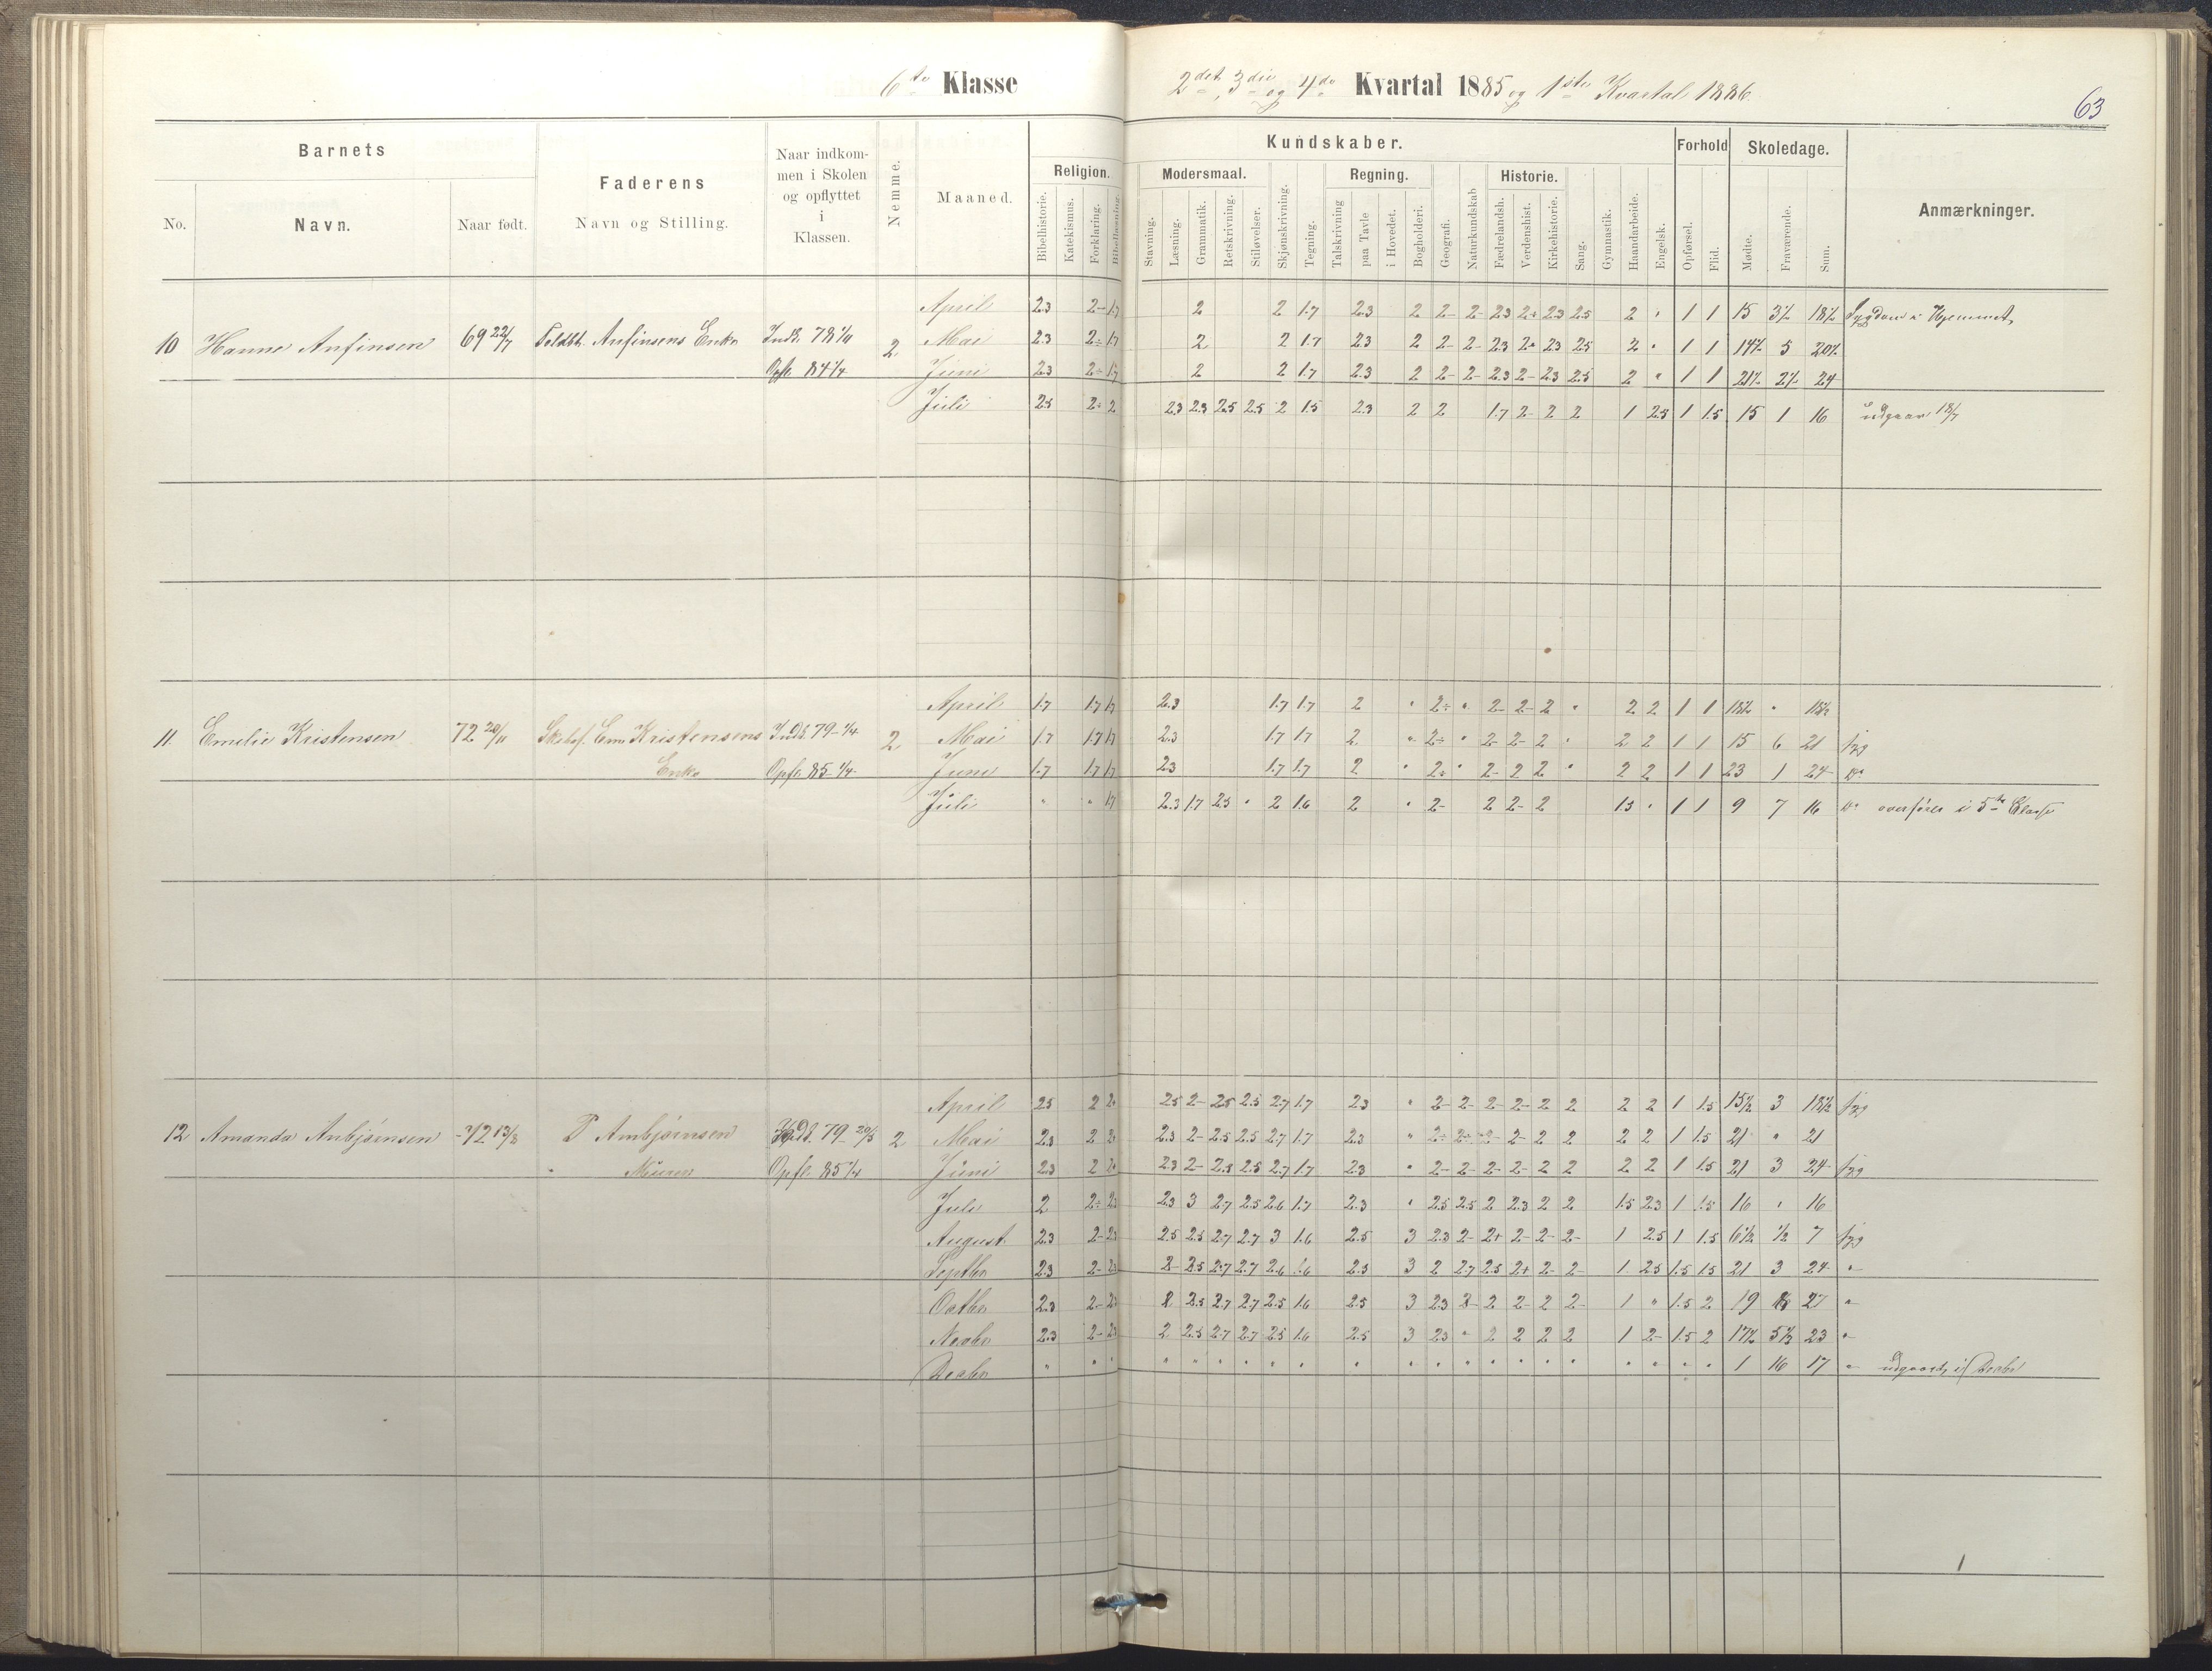 6te Klasse
2det, 3die og 4de Kvartal 1885 og 1ste Kvartal 1886.
63
Barnets
Faderens
Naar indkommen i Skolen og opflyttet i Klassen.
Nemme.
Maaned.
Religion.
Kundskaber.
Forhold
Skoledage.
Anmærkninger.
Modersmaal.
Regning.
Historie.
No.
Navn.
Naar født.
Navn og Stilling.
Bibelhistorie.
Katekismus.
Forklaring.
Bibellæsning.
Stavning.
Læsning.
Grammatik.
Retskrivning.
Stiløvelser.
Skjønskrivning.
Tegning.
Talskrivning
paa Tavle
i Hovedet.
Bogholderi.
Geografi.
Naturkundskab
Fædrelandsh.
Verdenshist.
Kirkehistorie.
Sang.
Gymnastik.
Haandarbeide.
Engelsk.
Opførsel.
Flid.
Mødte.
Fraværende.
Sum.
April 2.3 2- 1.7 2 2 1.7 2.3 2 2- 2- 2.3 2÷ 2.3 2.5 2 " 1 1 15 3½ 18½ Sygdom i Hjemmet,
10 Hanne Anfinsen 69 22/7 Anfinsens Enke Inds. 78 2 Mai 2.3 2÷ 1.7 2 2 1.7 2.3 2 2- 2- 2.3 2÷ 2.3 2.5 2 " 1 1 14½ 5 20½
Opfl. 84 1/4 Juni 2.3 2÷ 1.7 2 2 1.7 2.3 2 2- 2- 2.3 2- 2.3 2.5 2 " 1 1 21½ 2½ 24
Juli 2.5 2÷ 2 2.3 2.3 2.5 2.5 2 1.5 2.3 2 2 1.7 2- 2 2 1 2.3 1 1.5 15 1 16 udgaar 18/7
April 1.7 1.7 1.7 2.3 1.7 1.7 2 " 2÷ " 2- 2- 2 " 2 2 1 1 18½ " 18½
11. Emilie Kristensen 72 20/11 Kristensens Inds. 79 1/4 2 Mai 1.7 1.7 1.7 2.3 1.7 1.7 2 " 2÷ " 2- 2- 2 " 2 2 1 1 15 6 21 syg
Enke Opfl. 85 1/4 Juni 1.7 1.7 1.7 2.3 1.7 1.7 2 " 2÷ " 2- 2 2 " 2 2 1 1 23 1 24 do
Juli " " 1.7 2.3 1.7 2.5 " 2 1.6 2 " 2- 2 2- 2 1.5 " 1 1 9 7 16 do overføres i 5te Klasse
April 2.5 2 2÷ 2.5 2- 2.5 2.5 2.7 1.7 2.3 " 2- 2- 2- 2- 2 2 2 2 1 1.5 15½ 3 18½ syg
12 Amanda Anbjørnsen 72 13/8 P Anbjørnsen Inds. 79 20/5 2 Mai 2.3 2 2÷ 2.3 2- 2.5 2.5 2.7 1.7 2.3 " 2÷ 2÷ 2- 2- 2 2 2 2 1 1.5 21 " 21
Murer Opfl. 85 1/4 Juni 2.3 2 2÷ 2.3 2- 2.5 2.5 2.7 1.7 2.3 " 2- 2- 2- 2- 2 2 2 2 1 1.5 21 3 24 syg
Juli 2 2÷ 2.3 2.3 3 2.7 2.5 2.6 1.7 2.3 " 2.5 2.5 2 2.3 2 2 1.5 2.3 1 1.5 16 " 16
August 2.3 2- 2.3 2.5 2.5 2.7 2.7 3 1.6 2.5 3 2.3 2- 2+ 2- 2- 2- 1 2.5 1 1.5 6½ ½ 7 syg
Septbr 2.3 2- 2.3 2 2.5 2.7 2.7 2.6 1.6 2.5 3 2 2.7 2.5 2+ 2- 2- 1 2.5 1.5 1.5 21 3 24 "
Octbr 2.3 2- 2.3 2 2.5 2.7 2.7 2.5 1.6 2.5 3 2.3 2- 2 2- 2 2- 1 " 1.5 2 19 8 27 "
Novbr 2.3 2- 2.3 2 2.5 2.7 2.7 2.5 1.6 2.5 3 2.3 " 2 2 2 2 1 2- 1.5 2 17½ 5½ 23 "
Decbr " " " " " " " " " " " " " " " " " " " " " 1 16 17 " udgaaet i Decbr
1